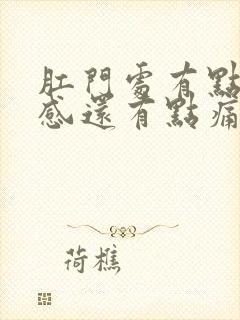 肛門處有點
感還有點痛
荷樵